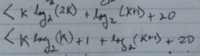 < k·log₂(2k) + log₂(k+1) + 20
< k log₂(k) + 1 + log₂(k+1) + 20